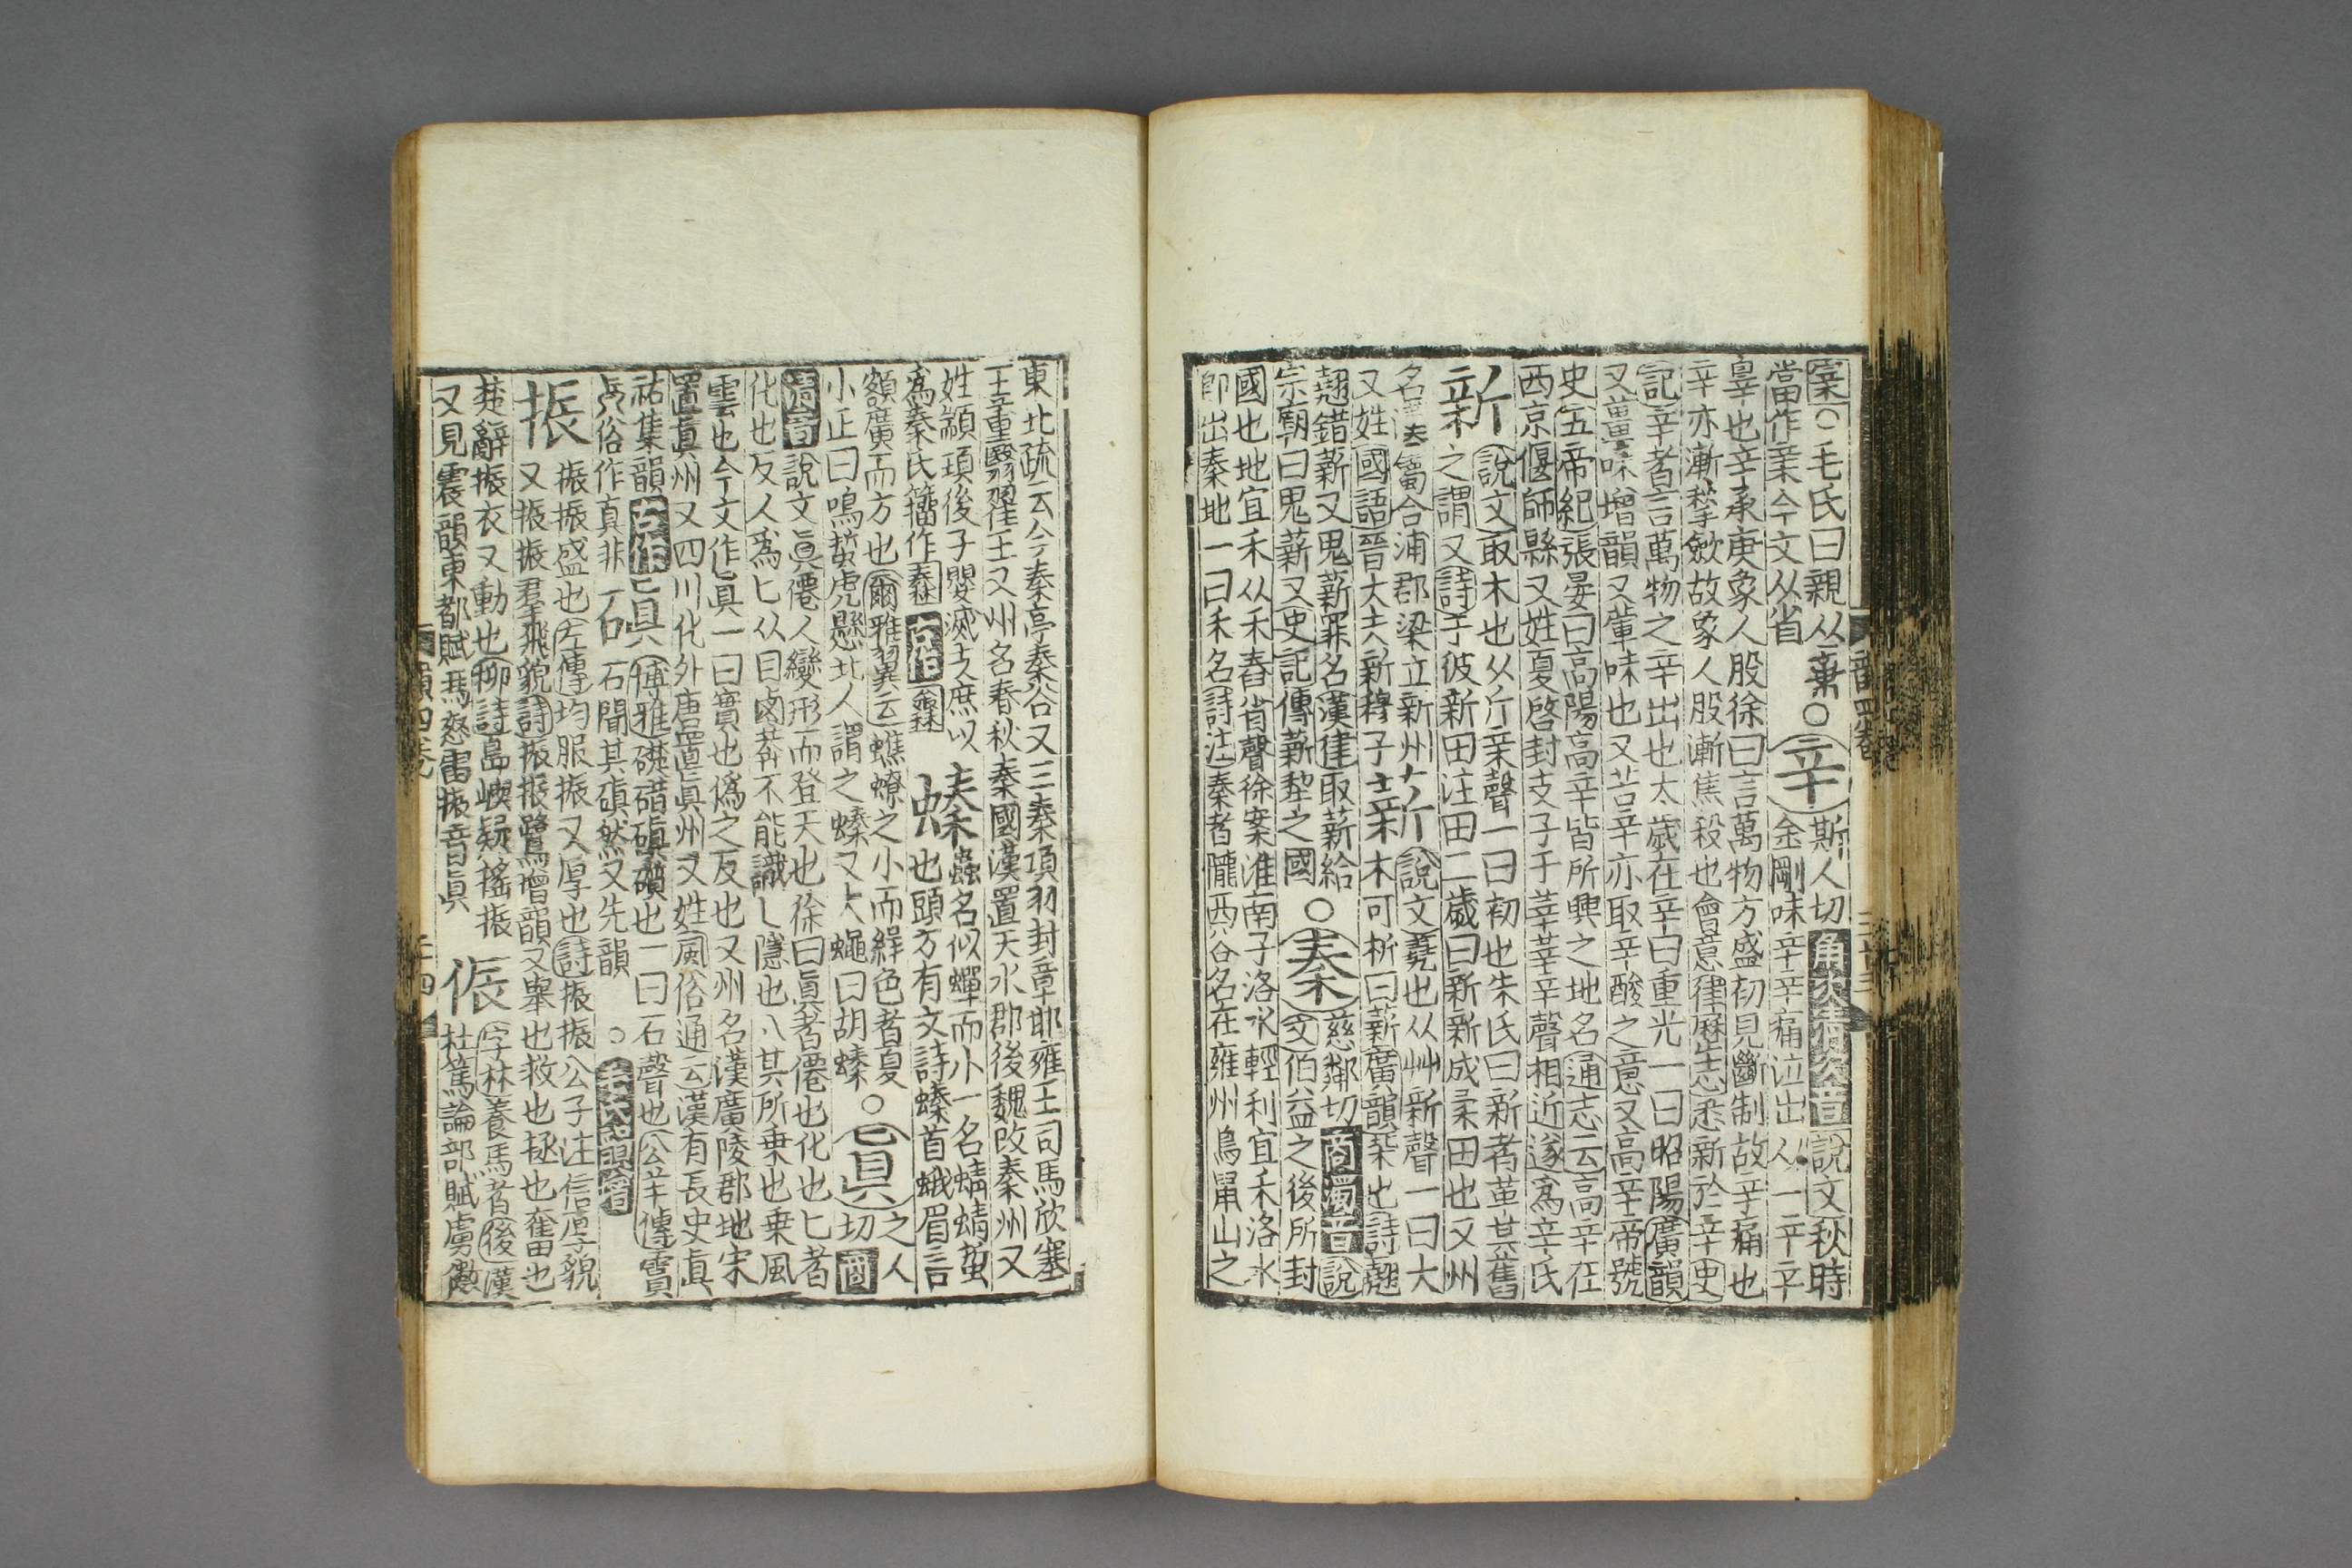 案○毛氏曰親从
當作亲今文从省
○辛
斯人切角次清次音說文秋時
金剛味辛辛痛泣出从一辛辛
辠也辛承庚象人股徐曰言萬物方盛初見斷制故辛痛也
辛亦漸揫斂故象人股漸焦殺也會意律歷志悉新於辛史
記辛者言萬物之辛出也太歲在辛曰重光一曰昭陽廣韻
又薑味增韻又葷味也又苦辛亦取辛酸之意又高辛帝號
史五帝紀張晏曰高陽高辛皆所興之地名通志云高辛在
西京偃師縣又姓夏啓封支子于莘莘辛聲相近遂爲辛氏
新
說文取木也从斤亲聲一曰初也朱氏曰新者革其舊
之謂又詩于彼新田注田二歲曰新新成柔田也又州
名合浦郡梁立新州
又姓國語晉大夫新穆子
薪
說文蕘也从艸新聲一曰大
木可析曰薪廣韻柴也詩翹
翹錯薪又鬼薪罪名漢律取薪給
宗廟曰鬼薪又史記傳薪犂之國
○秦
慈鄰切商濁音說
文伯益之後所封
國也地宜禾从禾舂省聲徐案淮南子洛水輕利宜禾洛水
卽出秦地一曰禾名詩注秦者隴西谷名在雍州鳥鼠山之
東北疏云今秦亭秦谷又三秦項羽封章邯雍王司馬欣塞
王董翳翟王又州名春秋秦國漢置天水郡後魏改秦州又
姓顓頊後子嬰滅支庶以
爲秦氏籀作𥢮古作
螓
蟲名似蟬而小一名蜻蜻蚻
也頭方有文詩螓首蛾眉言
額廣而方也爾雅翼云蟭蟟之小而綠色者夏
小正曰鳴蚻虎懸北人謂之螓又大蠅曰胡螓
○眞
之人
切商
清音說文眞僊人變形而登天也徐曰眞者僊也化也匕者
化也反人爲匕从目鹵莽不能識乚隱也八其所乗也乗風
雲也今文作真一曰實也僞之反也又州名漢廣陵郡地宋
置真州又四川化外唐置眞州又姓風俗通云漢有長史真
祐集韻古作
俗作真非
磌
博雅礎碏磌礩也一曰石聲也公羊傳霣
石聞其磌然又先韻
○
振
振振盛也左傳均服振振又厚也詩振振公子注信厚貌
又振振羣飛貌詩振振鷺增韻又舉也救也拯也奮也
楚辭振衣又動也柳詩島嶼疑摇振
又見震韻東都賦馮怒雷振音眞
侲
字林養馬者後漢
杜篤論都賦虜
韻四卷